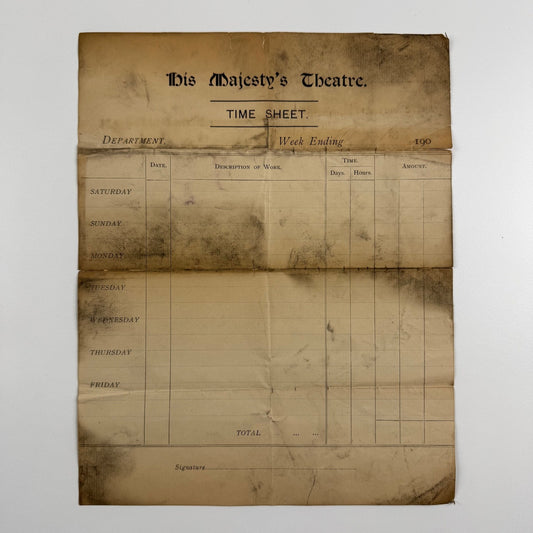 His Majesty's Theatre.
TIME SHEET.
DEPARTMENT Week Ending 190
DATE. DESCRIPTION OF WORK. TIME. AMOUNT.
Days. Hours.
SATURDAY
SUNDAY
MONDAY
TUESDAY
WEDNESDAY
THURSDAY
FRIDAY
TOTAL ... ...
Signature